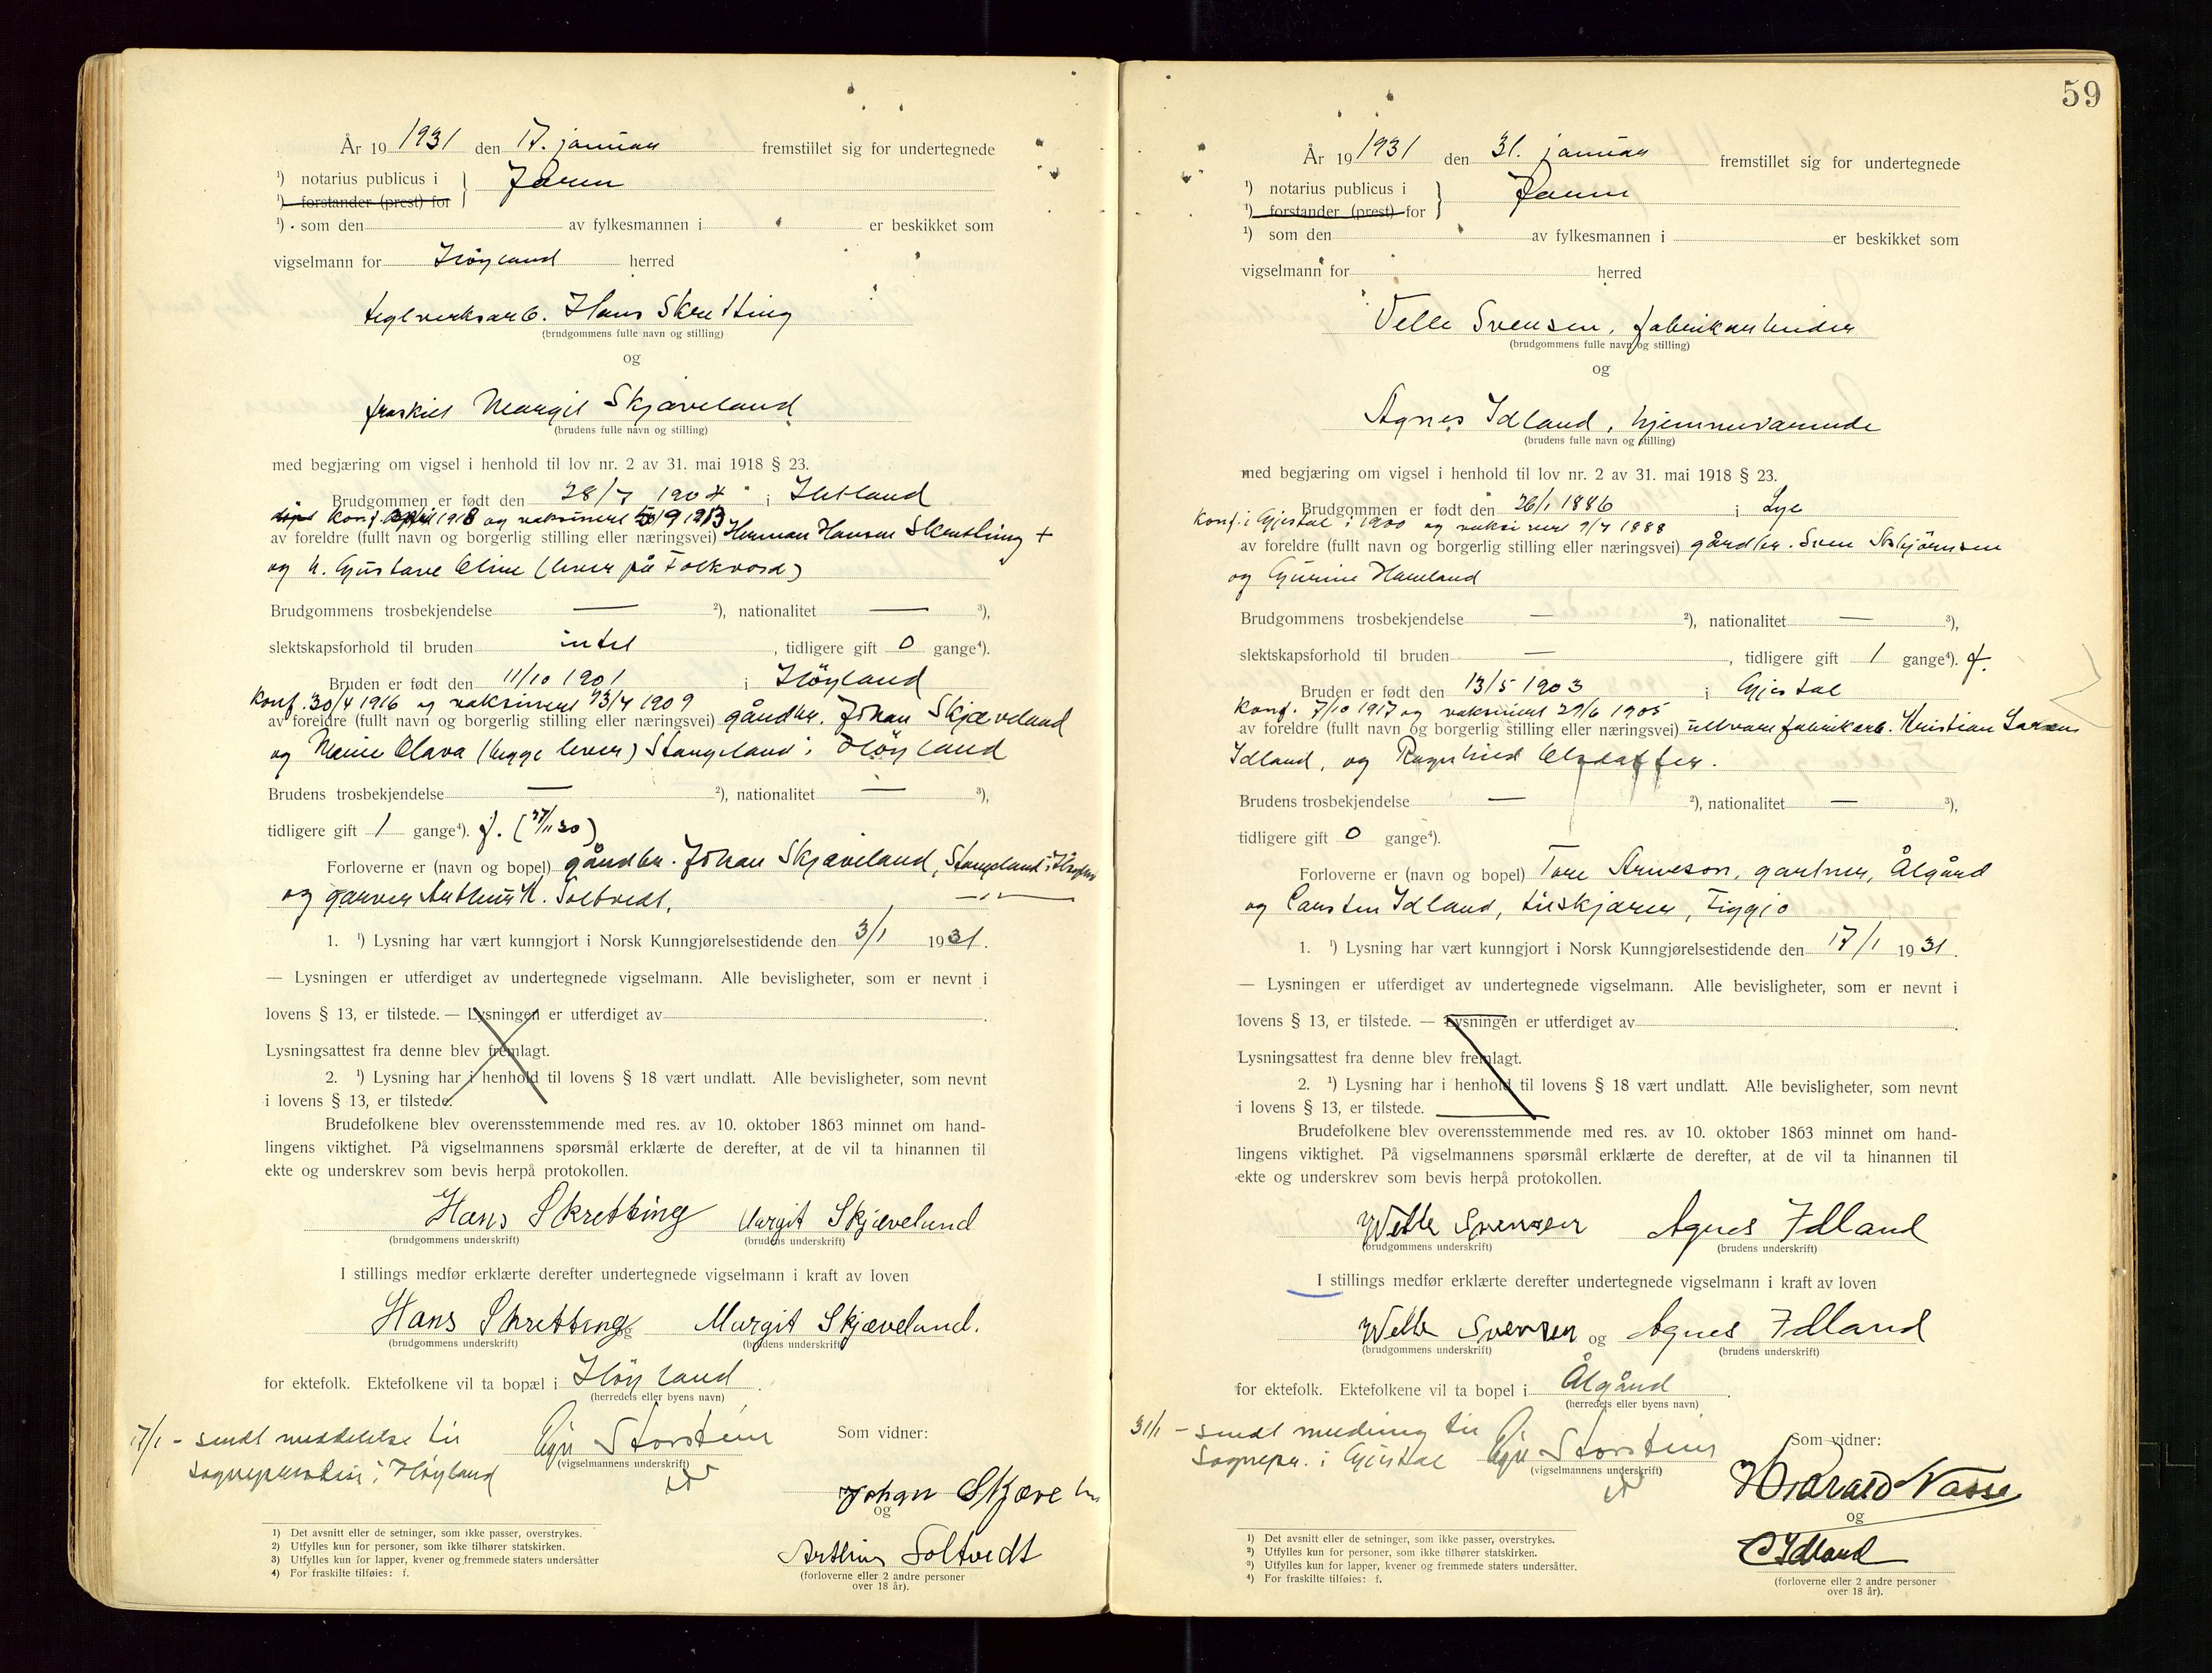 År 19 1931 den 17. januar fremstillet sig for undertegnede
¹) notarius publicus i Jæren
¹) forstander (prest) for
¹) som den av fylkesmannen i er beskikket som
vigselmann for Høyland herred
teglverksarb. Hans Skretting
(brudgommens fulle navn og stilling)
og
fraskilt Margit Skjæveland
(brudens fulle navn og stilling)
med begjæring om vigsel i henhold til lov nr. 2 av 31. mai 1918 § 23.
Brudgommen er født den 28/7 1904 i Hetland
konf. april 1918 og vaksinert 9 1913
av foreldre (fullt navn og borgerlig stilling eller næringsvei) Herman Hansen Skretting +
og h. Gustave Oline (lever på Folkvord)
Brudgommens trosbekjendelse — ²), nationalitet — ³),
slektskapsforhold til bruden intet, tidligere gift 0 gange⁴).
Bruden er født den 11/10 1901 i Høyland
konf. 30/4 1916 og vaksinert 13/7 1909
av foreldre (fullt navn og borgerlig stilling eller næringsvei) gårdbr. Johan Skjæveland
og Olava (begge lever) Stangeland i Høyland
Brudens trosbekjendelse — ²), nationalitet — ³),
tidligere gift 1 gange⁴). f. (27/11 30)
Forloverne er (navn og bopel) gårdbr. Johan Skjæveland, Stangeland i Høyland
og garver Arthur K. Soltvedt, —"—
1. ¹) Lysning har vært kunngjort i Norsk Kunngjørelsestidende den 3/1 1931.
— Lysningen er utferdiget av undertegnede vigselmann. Alle bevisligheter, som er nevnt i
lovens § 13, er tilstede. — Lysningen er utferdiget av
Lysningsattest fra denne blev fremlagt.
2. ¹) Lysning har i henhold til lovens § 18 vært undlatt. Alle bevisligheter, som nevnt
i lovens § 13, er tilstede.
Brudefolkene blev overensstemmende med res. av 10. oktober 1863 minnet om hand-
lingens viktighet. På vigselmannens spørsmål erklærte de derefter, at de vil ta hinannen til
ekte og underskrev som bevis herpå protokollen.
Hans Skretting Margit Skjæveland
(brudgommens underskrift) (brudens underskrift)
I stillings medfør erklærte derefter undertegnede vigselmann i kraft av loven
Hans Skretting og Margit Skjæveland.
(brudgommens underskrift) (brudens underskrift)
for ektefolk. Ektefolkene vil ta bopæl i Høyland.
(herredets eller byens navn)
17/1 – sendt meddelelse til
sognepresten i Høyland
Storstein
(vigselmannens underskrift)
Som vidner:
Johan Skjæve
og
Arthur Soltvedt
(forloverne eller 2 andre personer
over 18 år).
1) Det avsnitt eller de setninger, som ikke passer, overstrykes.
2) Utfylles kun for personer, som ikke tilhører statskirken.
3) Utfylles kun for lapper, kvener og fremmede staters undersåtter
4) For fraskilte tilføies: f.
59
År 19 1931 den 31. januar fremstillet sig for undertegnede
¹) notarius publicus i Jæren
¹) forstander (prest) for
¹) som den av fylkesmannen i er beskikket som
vigselmann for herred
Velle Svensen, fabrikarbeider
(brudgommens fulle navn og stilling)
og
Agnes Idland, hjemmeværende
(brudens fulle navn og stilling)
med begjæring om vigsel i henhold til lov nr. 2 av 31. mai 1918 § 23.
Brudgommen er født den 26/1 1886 i Lye
konf. i Gjestal i 1900 og vaksinert 9/7 1888
av foreldre (fullt navn og borgerlig stilling eller næringsvei) gårdbr. Sven Asbjørnsen
og Gurine Haveland
Brudgommens trosbekjendelse — ²), nationalitet — ³),
slektskapsforhold til bruden —, tidligere gift 1 gange⁴). f.
Bruden er født den 13/5 1903 i Gjestal
konf. 7/10 1917 og vaksinert 29/6 1905
av foreldre (fullt navn og borgerlig stilling eller næringsvei) ullvarefabrikarb. Kristian Larsen
Idland, og Ragnhild Olsdatter.
Brudens trosbekjendelse — ²), nationalitet — ³),
tidligere gift 0 gange⁴).
Forloverne er (navn og bopel) Tore Arneson, gartner, Ålgård
og Carsten Idland, tilskjærer, Figgjo
1. ¹) Lysning har vært kunngjort i Norsk Kunngjørelsestidende den 17/1 1931.
— Lysningen er utferdiget av undertegnede vigselmann. Alle bevisligheter, som er nevnt i
lovens § 13, er tilstede. — Lysningen er utferdiget av
Lysningsattest fra denne blev fremlagt.
2. ¹) Lysning har i henhold til lovens § 18 vært undlatt. Alle bevisligheter, som nevnt
i lovens § 13, er tilstede.
Brudefolkene blev overensstemmende med res. av 10. oktober 1863 minnet om hand-
lingens viktighet. På vigselmannens spørsmål erklærte de derefter, at de vil ta hinannen til
ekte og underskrev som bevis herpå protokollen.
Velle Svensen Agnes Idland
(brudgommens underskrift) (brudens underskrift)
I stillings medfør erklærte derefter undertegnede vigselmann i kraft av loven
Velle Svensen og Agnes Idland
(brudgommens underskrift) (brudens underskrift)
for ektefolk. Ektefolkene vil ta bopel i Ålgård.
(herredets eller byens navn)
31/1 – sendt melding til
sognepr. i Gjestal
Storstein
(vigselmannens underskrift)
Som vidner:
Harald Vasse
og
C Idland
(forloverne eller 2 andre personer
over 18 år).
1) Det avsnitt eller de setninger, som ikke passer, overstrykes.
2) Utfylles kun for personer, som ikke tilhører statskirken.
3) Utfylles kun for lapper, kvener og fremmede staters undersåtter.
4) For fraskilte tilføies: f.